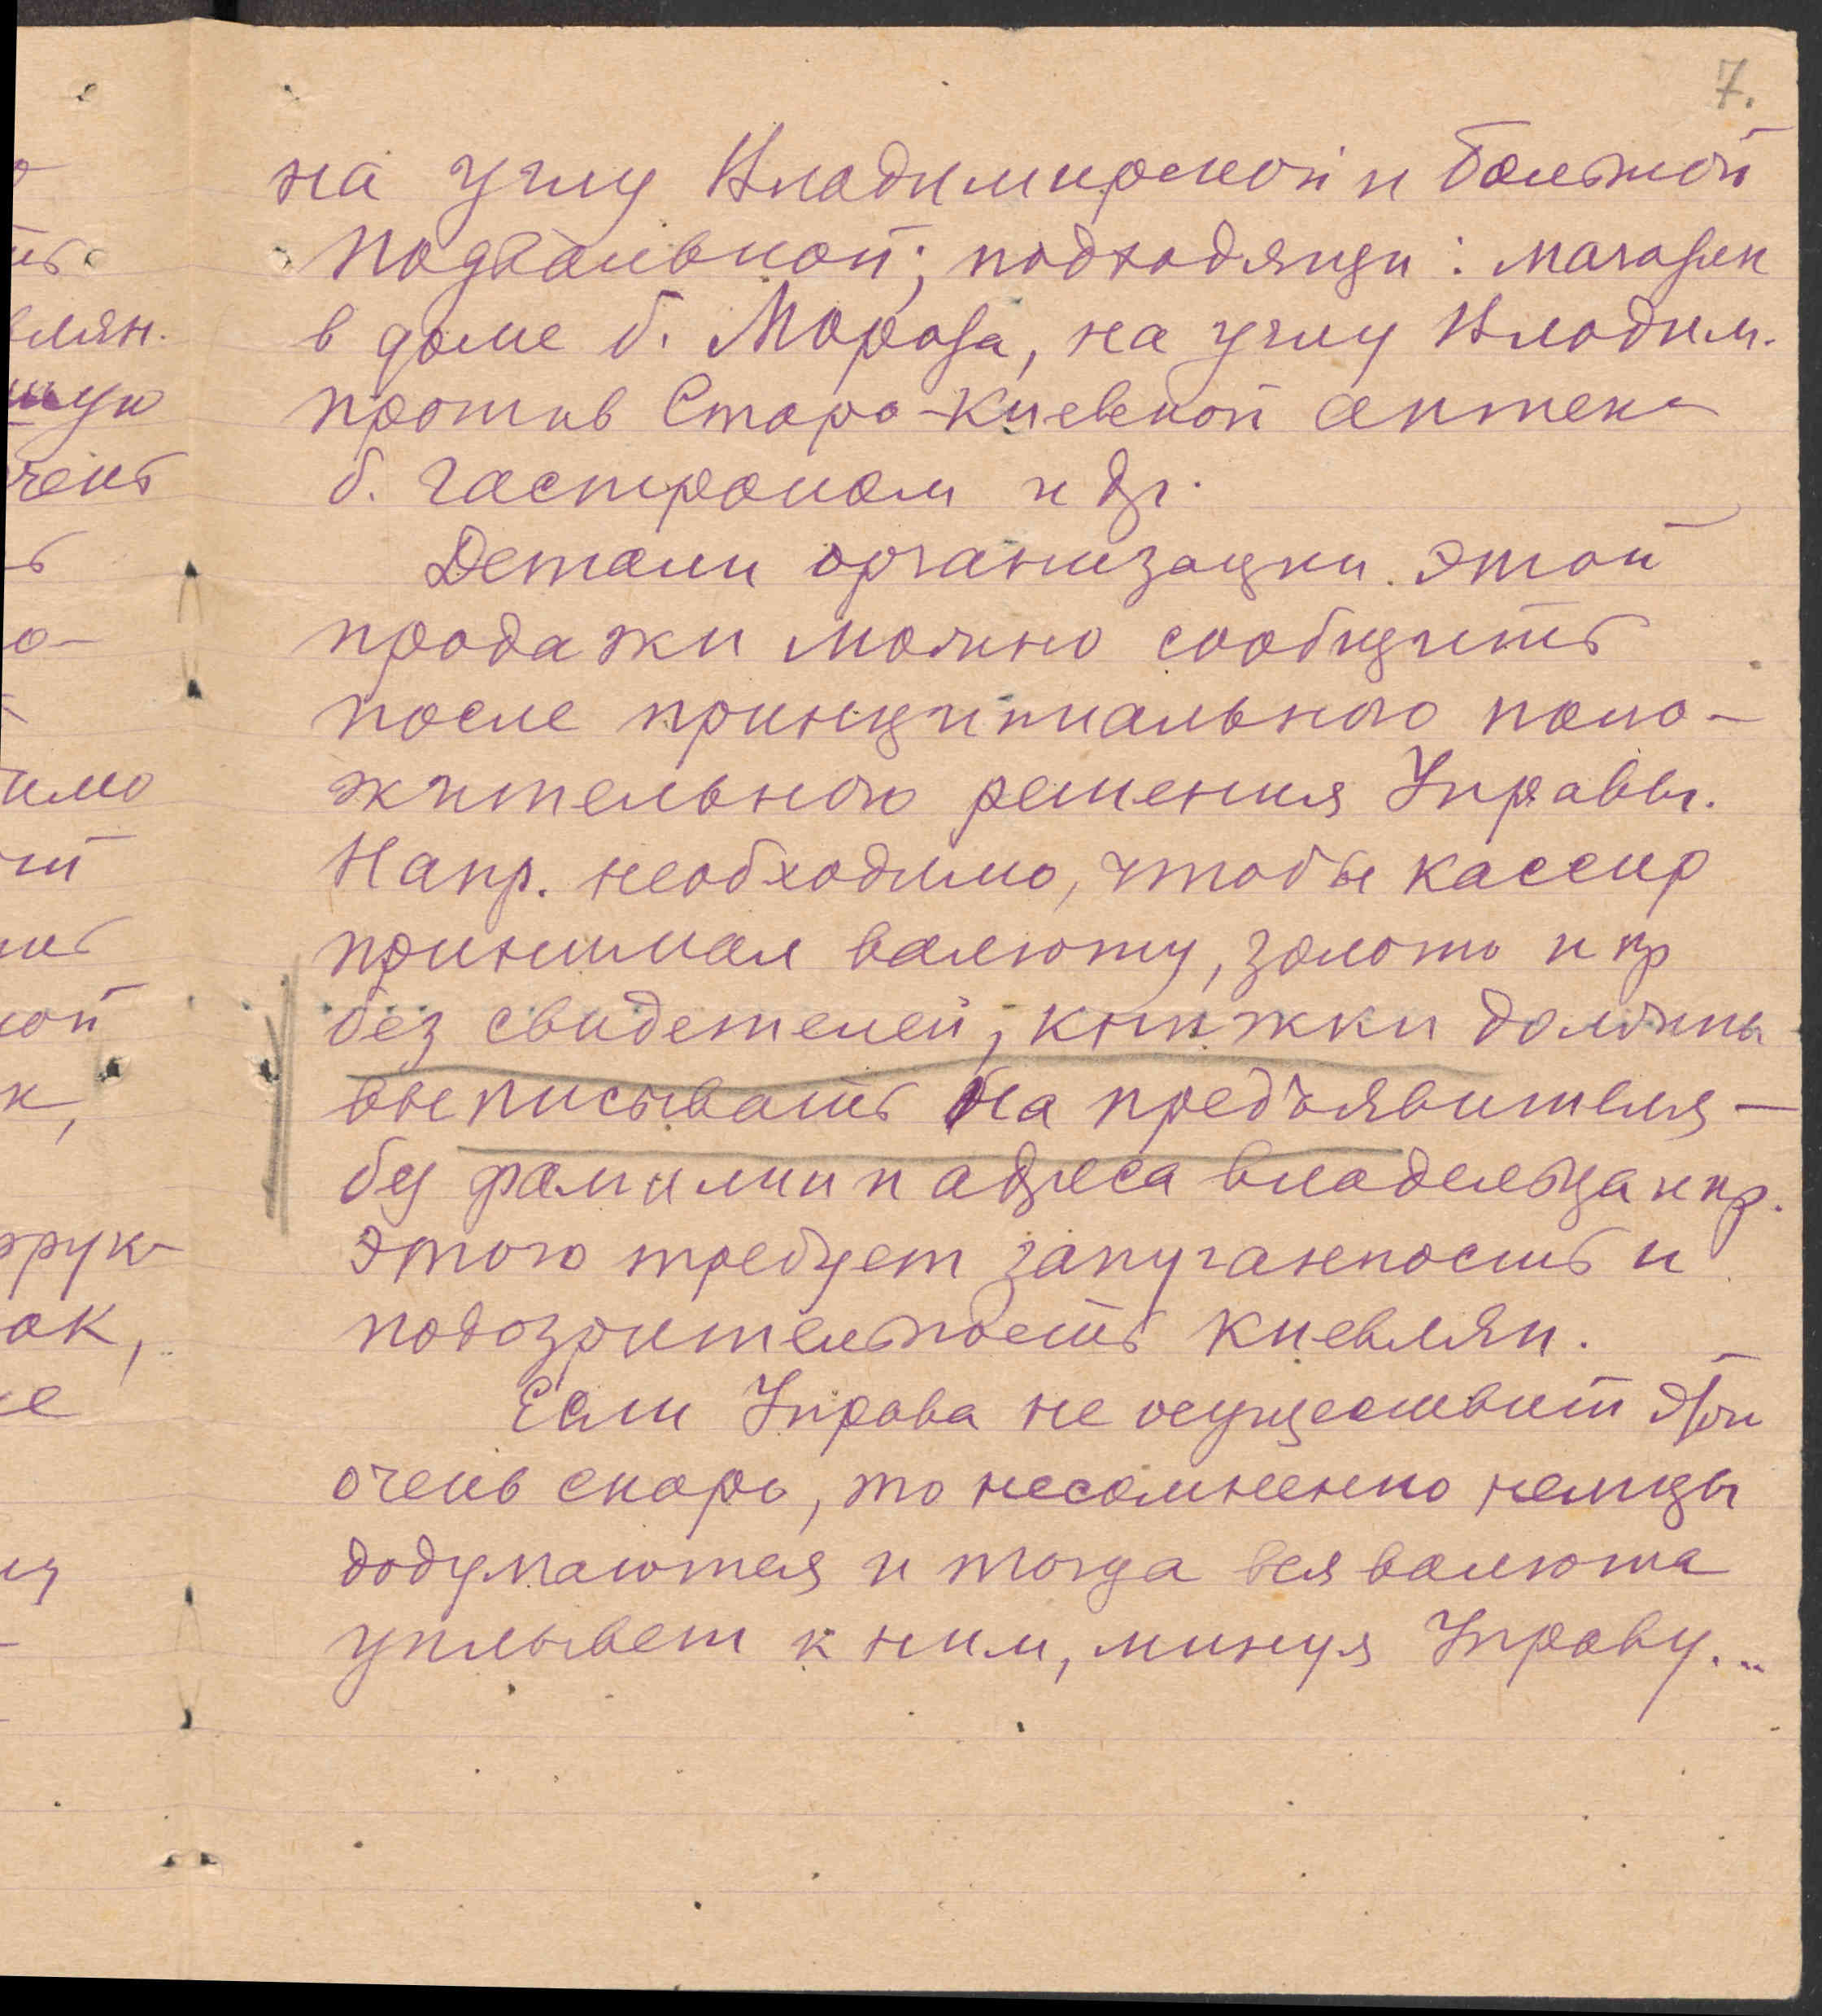 7.
на углу Владимирской и Большой
Подвальной; подходящи: магазин
в доме б. Мороза, на углу Владим.
против Старо-Киевской аптеки
б. Гастроном и др.
Детали организации этой
продажи можно сообщить
после принципиального поло-
жительного решения Управы.
Напр. необходимо, чтобы кассир
принимал валюту, золото и пр
без свидетелей, книжки должны
выписывать на предъявителя —
без фамилии и адреса владельца и пр.
Этого требует запуганность и
подозрительность киевлян.
Если Управа не осуществит это
очень скоро, то несомненно немцы
додумаются и тогда вся валюта
уплывет к ним, минуя Управу...